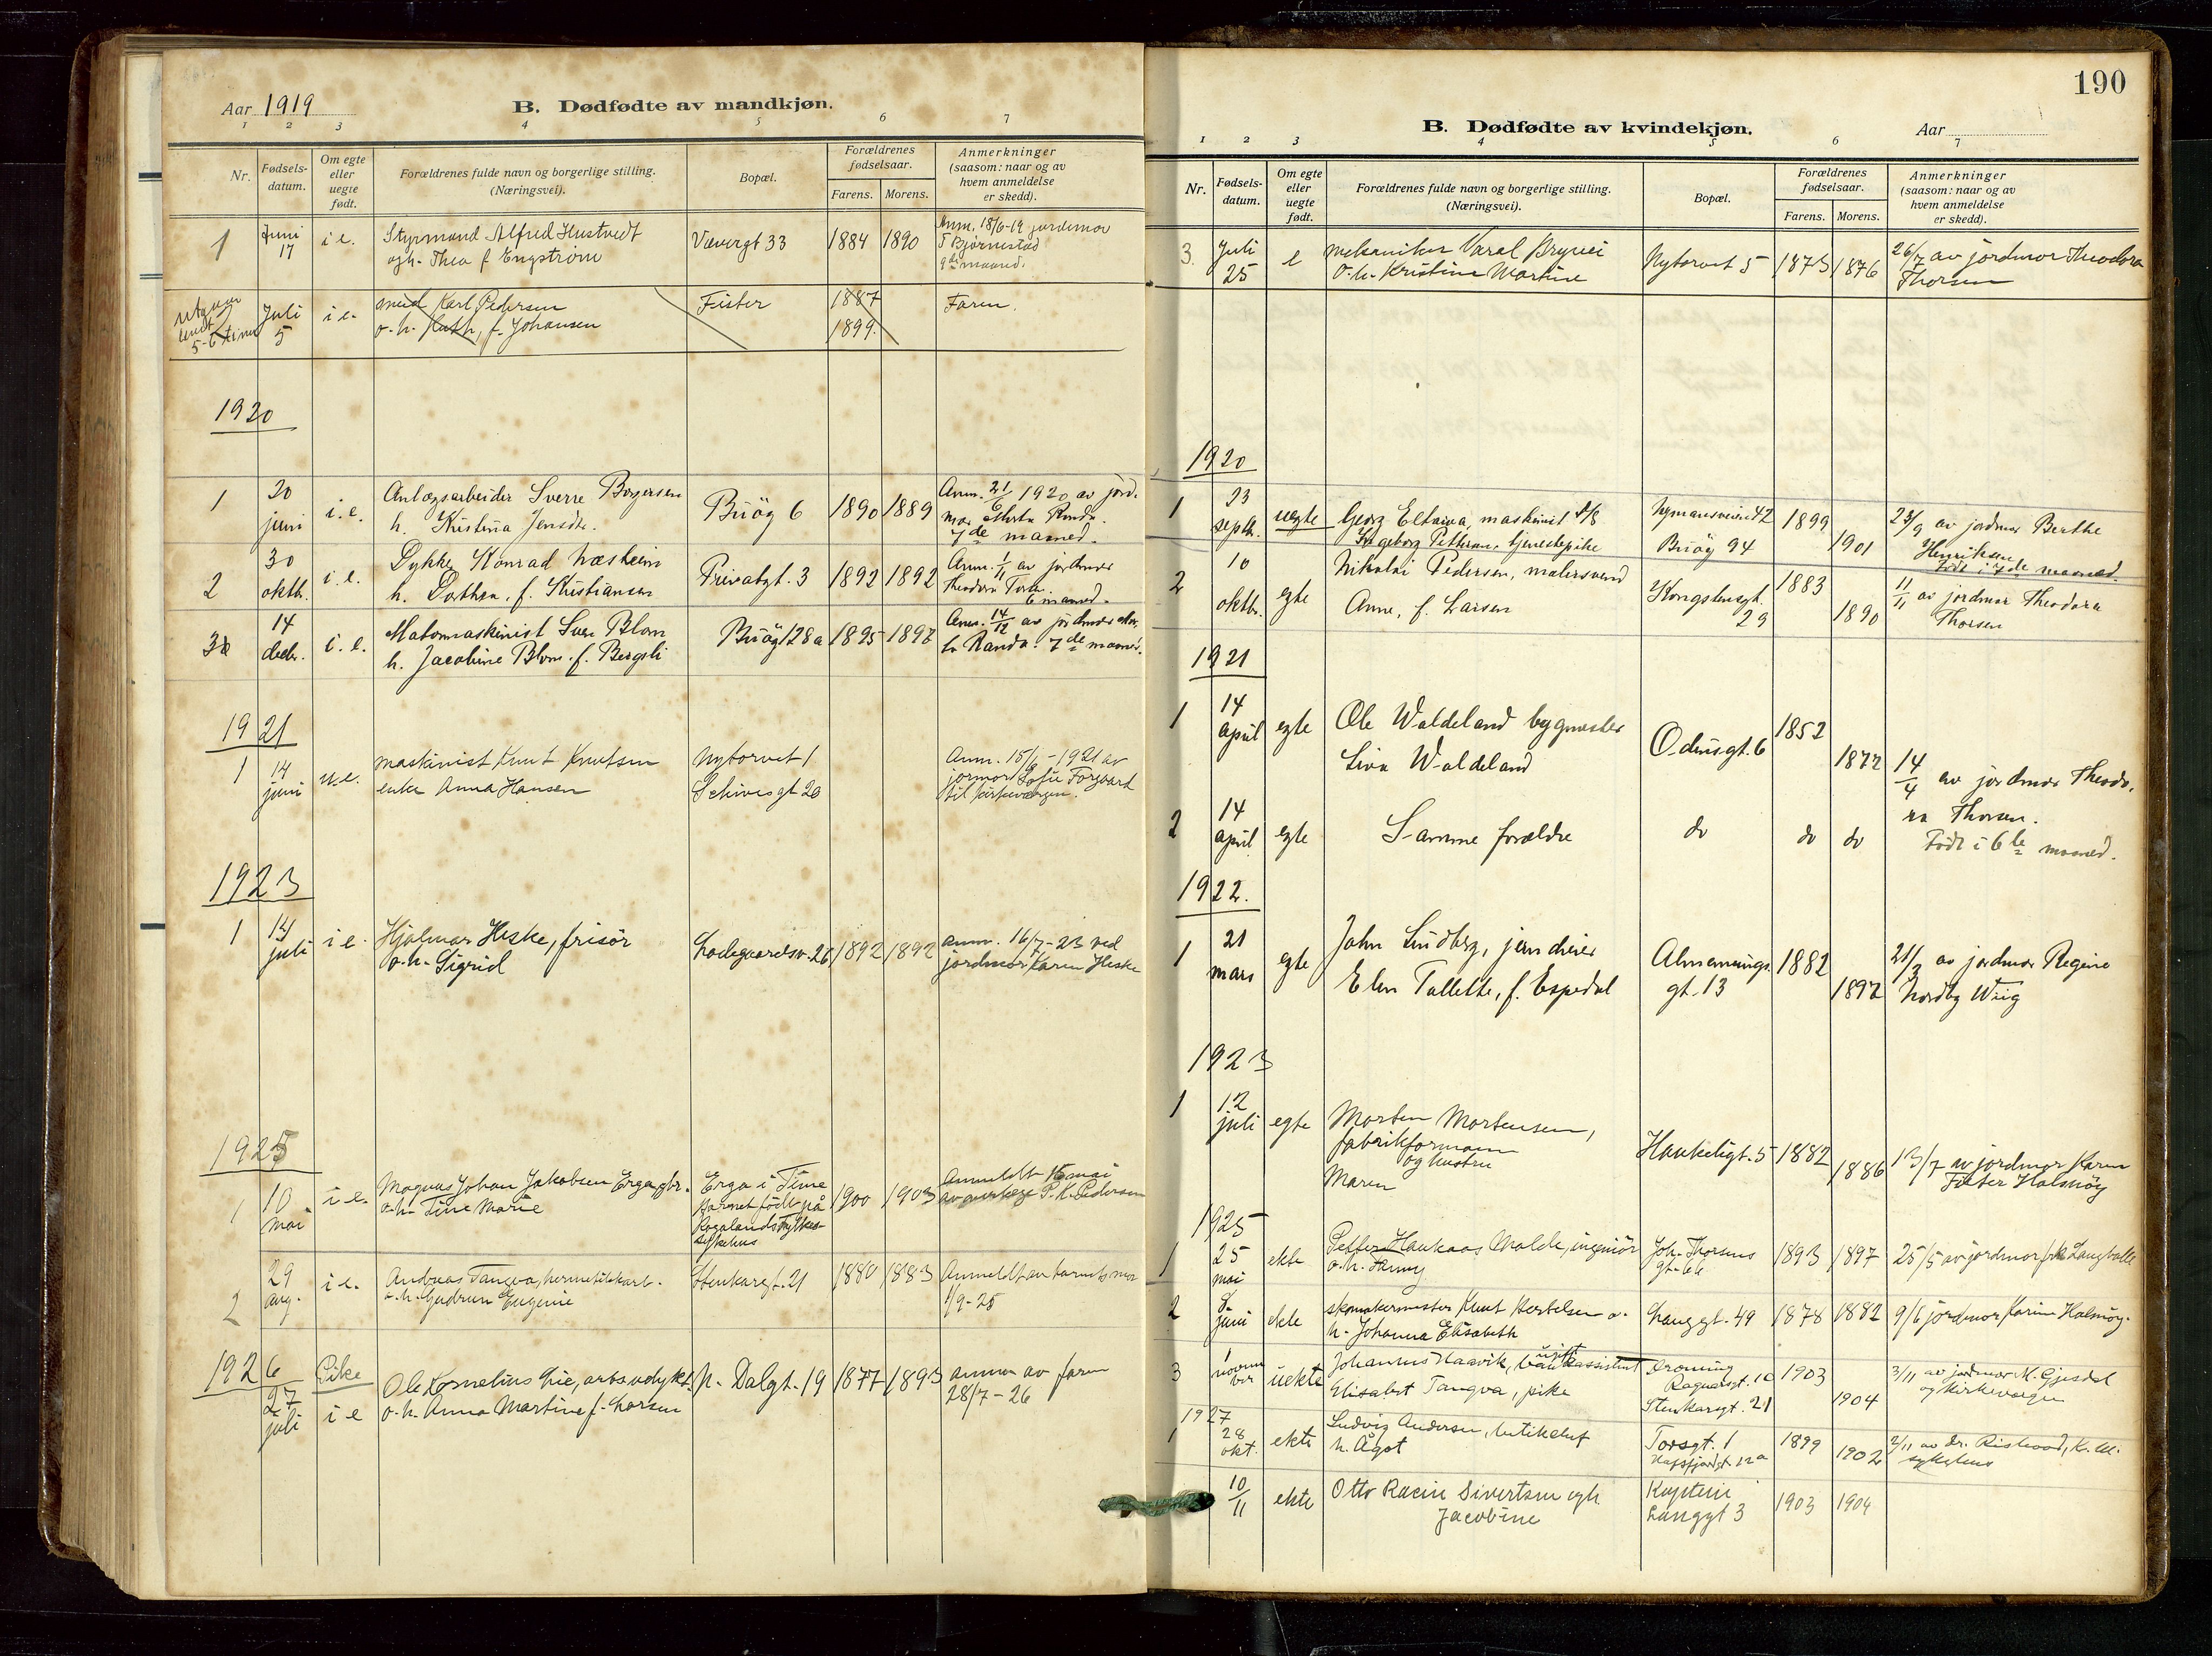 Aar 1919
B. Dødfødte av mandkjøn.
1 2 3 4 5 6 7
Nr.
Fødsels-
datum.
Om egte
eller
uegte
født.
Forældrenes fulde navn og borgerlige stilling.
(Næringsvei).
Bopæl.
Forældrenes
fødselsaar.
Farens. Morens.
Anmerkninger
(saasom: naar og av
hvem anmeldelse
er skedd).
1
Juni
17
i e.
Styrmand Alfred Hustvedt
og h. Thea f Engstrøm
Vævergt 33
1884 1890
Anm. 18/6-19 jordemor
T Bjørnestad
9de maaned.
5-6 timer
Juli
5
i e.
smed Karl Pedersen
o. h. Ruth, f. Johansen
Fister
1887
1899.
Faren.
1920
1
20
juni
i. e.
Anlægsarbeider Sverre Borgersen
h. Kristina Jensdtr.
Buøg 6
1890 1889
Anm. 21/6 1920 av jord.
mor Marta Randa.
7de maaned.
2
30
oktbr.
i. e.
Dykker Konrad Næsheim
h. Dorthea, f. Kristiansen
Privatgt. 3
1892 1892
Anm. 1/11 av jordmor
Theodora Thorsen.
6 maaned.
3
14
decbr.
i. e.
Motormaskinist Sven Blom
h. Jacobine Blom. f. Bergsli
Buøg 128a
1895 1897
Anm. 14/12 av jordmor Mar-
ta Randa. 7de maaned.
1921
1
14
juni
u.e.
maskinist Knut Knutsen
enke Anna Hansen
Nytorvet 1
Schivesgt 20
Anm. 15/6-1921 av
jormor Sofie Forgaard
til kirkevergen.
1923
1
14
juli
i e.
Hjalmar Heske, frisør
o. h. Sigrid
Ladegaardsv. 26
1892 1892
anm. 16/7-23 ved
jordmor Karen Heske
1925
1
10
mai
i e.
Magnus Johan Jakobsen Erga, gbr.
o. h. Tine Marie
Erga i Time
Barnet født på
Rogalands Fylkes-
sykehus
1900 1903
Anmeldt 16 mai
av overlæge P. K. Pedersen
2
29
aug.
i e.
Andreas Tangva, hermetikkarb.
o. h. Gudrun Eugenie
Stenkargt. 21
1880 1883
Anmeldt av barnets mor
1/9-25
1926
Pike
27
juli
i e
Ole Kornelius Lie, arbeidsdykk.
o. h. Anna Martine f. Larsen
N. Dalgt. 19
1877 1893
anmm av faren
28/7-26
190
B. Dødfødte av kvindekjøn.
Aar
1 2 3 4 5 6 7
Nr.
Fødsels-
datum.
Om egte
eller
uegte
født.
Forældrenes fulde navn og borgerlige stilling.
(Næringsvei).
Bopæl.
Forældrenes
fødselsaar.
Farens. Morens.
Anmerkninger
(saasom: naar og av
hvem anmeldelse
er skedd).
3.
Juli
25
e
mekaniker Varal Bryni
o. h. Kristine Martine
Nytorvet 5
1873 1876
26/7 av jordmor Theodora
Thorsen
1920
1
23
septb.
uegte
Georg Eltarva, maskinist s/s
Ingeborg Pettersen, tjenestepike
Nymansveien 42
Buøg 94
1899
1901
23/9 av jordmor Berthe
Henriksen
Født i 7de maaned.
2
10
oktbr.
egte
Nikolai Pedersen, malersvend
Anne, f. Larsen
Kongstensgt.
29
1883
1890
11/11 av jordmor Theodora
Thorsen
1921
1
14
april
egte
Ole Waldeland bygmester
Siva Waldeland
Odinsgt. 6
1852
1872
14/4 av jordmor Theodo-
ra Thorsen.
2
14
april
egte
Samme forældre
do
do do
Født i 6te maaned.
1922.
1
21
mars
egte
John Lindberg, jerndreier
Elen Tallette, f. Espedal
Almennings
gt. 13
1882
1892
21/3 av jordmor Regine
Nordby Wiig
1923
1
12
juli
egte
Morten Mortensen,
fabrikformann
og hustru
Maren
Haukeligt. 5
1882
1886
13/7 av jordmor Karen
Fister Halmøy
1925
1
25
mai
ekte
Petter Haukaas Molde, ingeniør
o. h. Fanny
Joh. Thorsens
gt. 66
1893 1897
25/5 av jordmor frk Langballe
2
8
juni
ekte
skomakermester Knut Herbelsen o.
h. Johanna Elisabeth
Langgt. 49
1878 1882
9/6 jordmor Karin Halmøy.
3
1
novem
ber
uekte
Johannes Haavik, ugift bankassistent
Elisabet Tangva, pike
Dronning
Ragnasgt. 10
Stenkargt. 21
1903
1904
3/11 av jordmor M. Gjesdal
og kirkevergen
1927
1
28
okt.
ekte
Ludvig Andersen, butikchef
h. Ågot
Torsgt. 1
Hafsfjordgt. 12a
1899
1902
2/11 av dr. Risteod, K. M.
sykehus
10/11
ekte
Otto Racin Sivertsen og h.
Jacobine
Kaptein
Langgt 3
1903 1904